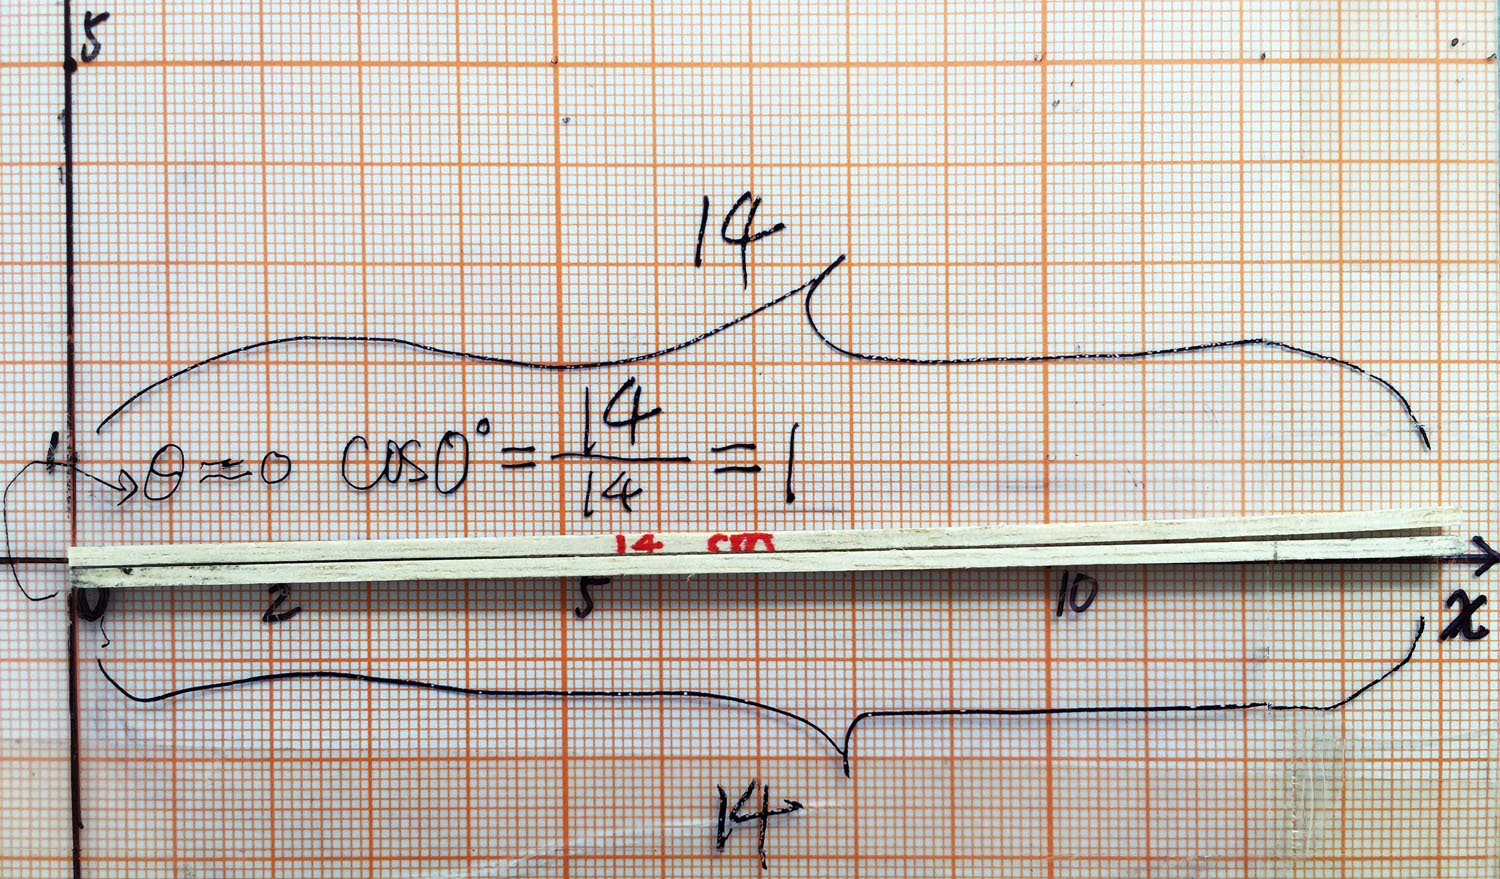 5
14
1
θ≈0 cos0°=14/14=1
14 cm
0 2 5 10
x
14